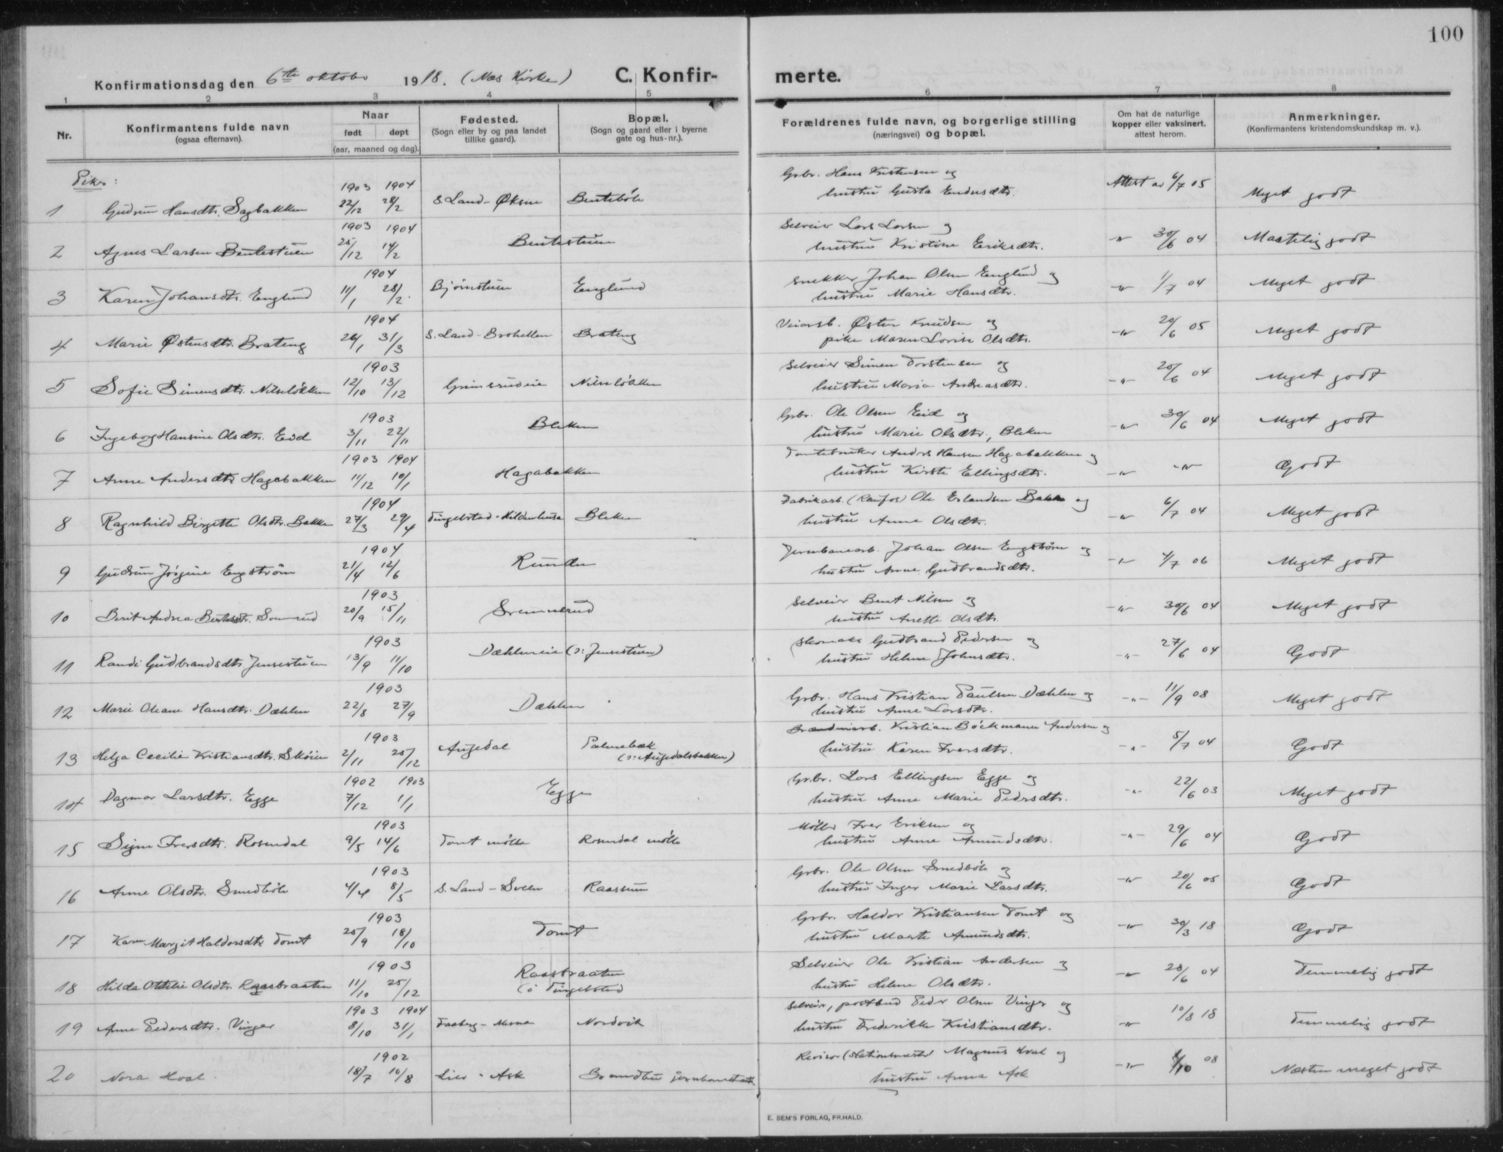 100
Konfirmationsdag den 6te oktober 1918. (Næs Kirke) C. Konfirmerte.
1 2 3 4 5 6 7 8
Nr. Konfirmantens fulde navn (ogsaa efternavn). Naar født døpt (aar, maaned og dag). Fødested. (Sogn eller by og paa landet tillike gaard). Bopæl. (Sogn og gaard eller i byerne gate og hus-nr.). Forældrenes fulde navn, og borgerlige stilling (næringsvei) og bopæl. Om hat de naturlige kopper eller vaksinert. attest herom. Anmerkninger. (Konfirmantens kristendomskundskap m. v.).
Piker:
1903 1904 Grbr. Hans Kristensen og
1 Gudrun Hansdtr. Sagbakken 22/12 28/2 S. Land - Øksne Bentebøle hustru Gusta Endresdtr. Attest av 6/7 05 Meget godt
1903 1904 Selveier Lars Larsen og
2 Agnes Larsen Bentestuen 25/12 14/2 Bentestuen hustru Kristine Eriksdtr. -"- 30/6 04 Maatelig godt
1904 Snekker Johan Olsen Englund og
3 Karen Johansdtr. Englund 11/1 28/2 Bjørnstuen Englund hustru Marie Hansdtr. -"- 1/7 04 Meget godt
1904 Østen Knudsen og
4 Marie Østensdtr. Brateng 26/1 31/3 S. Land - Brateng pike Maren Lovise Olsdtr. -"- 20/6 05 Meget godt
1903 Selveier Simen Torstensen og
5 Sofie Simensdtr. Nilsløkken 12/10 13/12 Nilsløkken hustru Maria Andreasdtr. -"- 20/6 04 Meget godt
1903 Grbr. Ole Olsen Eid og
6 Ingeborg Hansine Olsdtr. Eid 3/11 22/11 Bleken hustru Marie Olsdtr, Bleken -"- 30/6 04 Meget godt
1903 1904 Tomtebruker Anders Hansen Hagabakken og
7 Anne Andersdtr Hagabakken 11/12 10/1 Hagabakken hustru Kirsti Ellingsdtr. -"- -"- Godt
1904 Fabrikarb. (Raufos) Ole Erlandsen Bakke og
8 Ragnhild Birgitte Olsdtr. Bakken 24/3 29/4 Tingelstad - Bleken hustru Anne Olsdtr. -"- 6/7 04 Meget godt
1904 Jernbanearb. Johan Olsen Engstrøm og
9 Gudrun Jørgine Engstrøm 21/4 12/6 Runden hustru Anne Gudbrandsdtr. -"- 4/7 06 Meget godt
1903 Selveier Bent Nilsen og
10 Berit Andrea Bentsdtr. 20/9 15/11 hustru Anette Olsdtr. -"- 30/6 04 Meget godt
1903 Skomaker Gudbrand Pedersen og
11 Randi Gudbrandsdtr. Jensestuen 13/9 11/10 Dæhleneie (ɔ: Jensestuen) hustru Helene Johnsdtr. -"- 27/6 04 Godt
1903 Grbr. Hans Kristian Paulsen Dæhlen og
12 Marie Oleane Hansdtr. Dæhlen 22/8 27/9 Dæhlen hustru Anne Larsdtr. -"- 11/9 08 Meget godt
1903 Kristian Böckmann Andersen og
13 Helga Cecilie Kristiansdtr. Skøien 2/11 25/12 Augedal Palmebæk (ɔ: Augedalsbakken) hustru Karen Iversdtr. -"- 5/7 04 Godt
1902 1903 Grbr. Lars Ellingsen Egge og
14 Dagmar Larsdtr. Egge 7/12 1/1 Egge hustru Anne Marie Pedersdtr. -"- 22/6 03 Meget godt
1903 Møller Iver Eriksen og
15 Signe Iversdtr. Rosendal 9/5 14/6 Tomt mølle Rosendal mølle hustru Anne Amundsdtr. -"- 29/6 04 Godt
1903 Grbr. Ole Olsen Smedbøle og
16 Anne Olsdtr. Smedbøle 4/4 8/5 S. Land - Sveen Raassum hustru Inger Marie Larsdtr. -"- 20/6 05 Godt
1903 Grbr. Haldor Kristiansen Tomt og
17 Karen Margit Haldorsdtr Tomt 25/9 18/10 Tomt hustru Marte Amundsdtr. -"- 30/3 18 Godt
1903 Selveier Ole Kristian Andersen og
18 Hilda Ottilie Olsdtr. Raasbraaten 11/10 25/12 Raasbraaten (i Tingelstad) hustru Helene Olsdtr. -"- 28/6 04 Temmelig godt
1903 1904 Selveier, postbud Peder Olsen Vinger og
19 Anne Pedersdtr. Vinger 8/10 31/1 Faaberg - Nordvik hustru Frederikke Kristiansdtr. -"- 10/8 18 Temmelig godt
1902 Revisor (stationsmester) Magnus Hval og
20 Nora Hval. 18/7 10/8 Lier - Ask Brandbu jernbanestat. hustru Anna Ask -"- 6/10 08 Næsten meget godt
E. SEM'S FORLAG, FR.HALD.